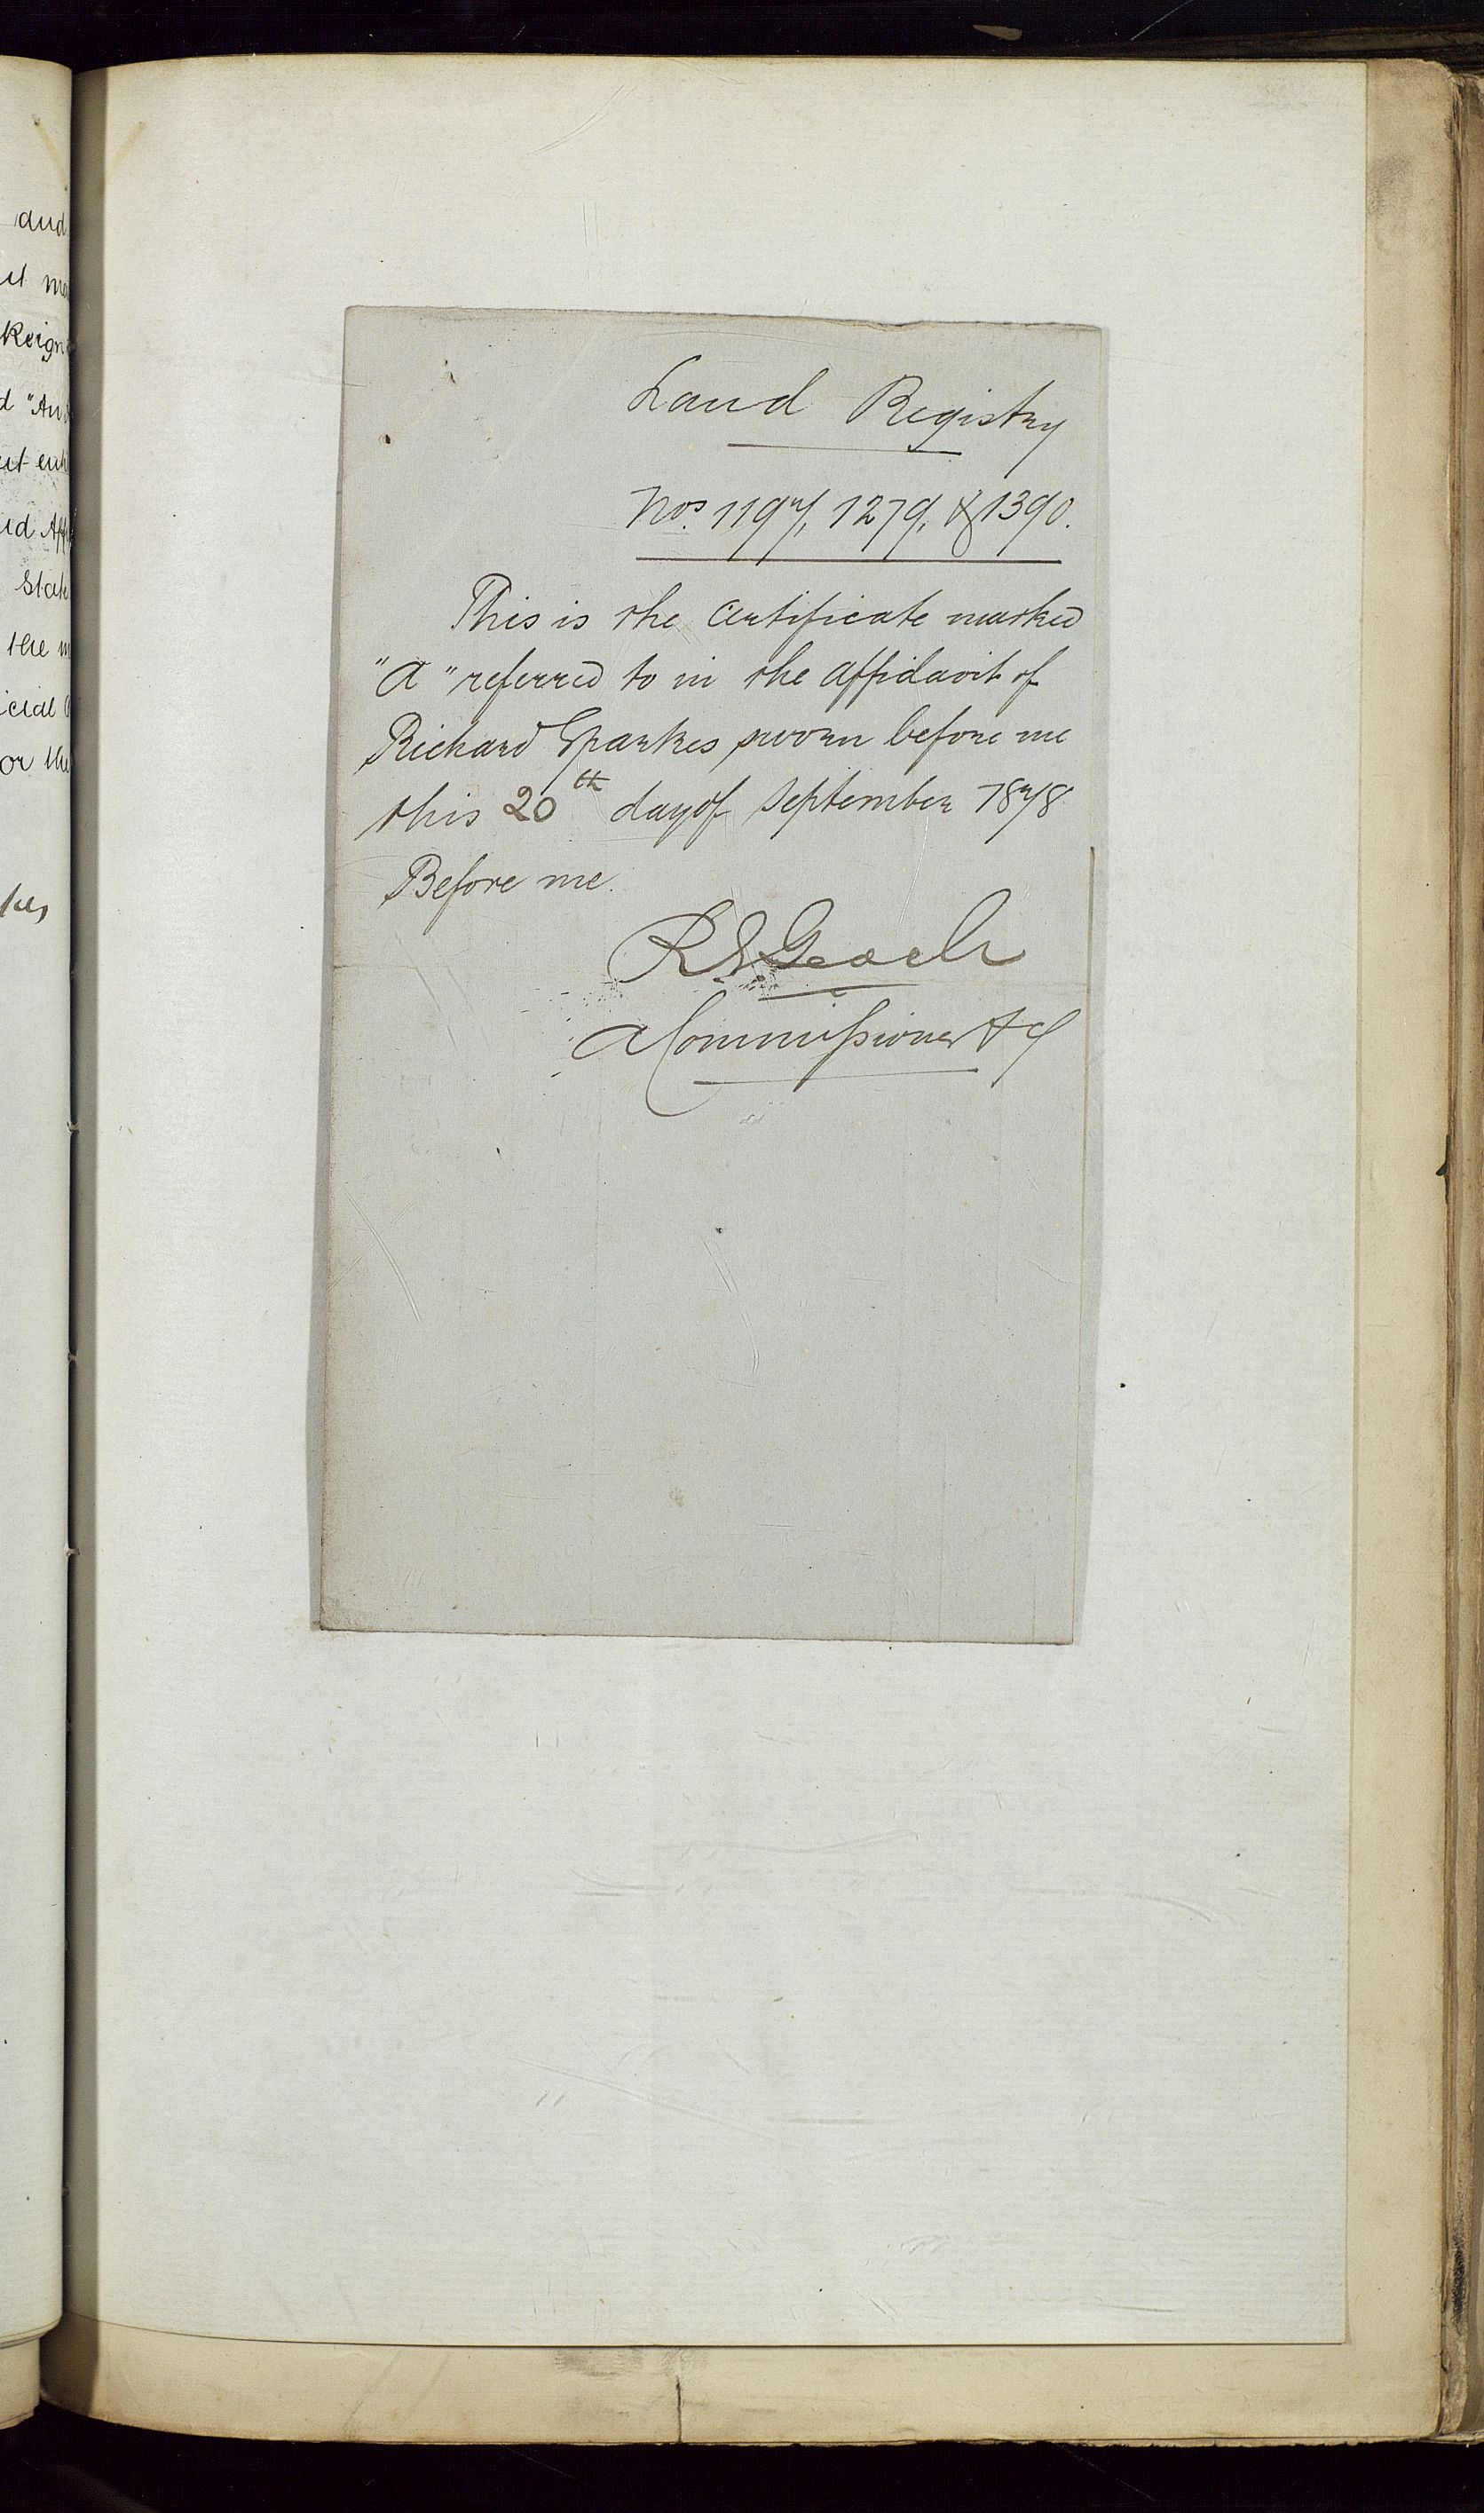 and
Reign
the
or the
Land Registry
Nos. 1197, 1279, & 1390.
This is the Certificate marked
"A" referred to in the affidavit of
Richard Sparkes sworn before me
this 20th day of September 1878
Before me.
R S Geach
A Commissioner &c